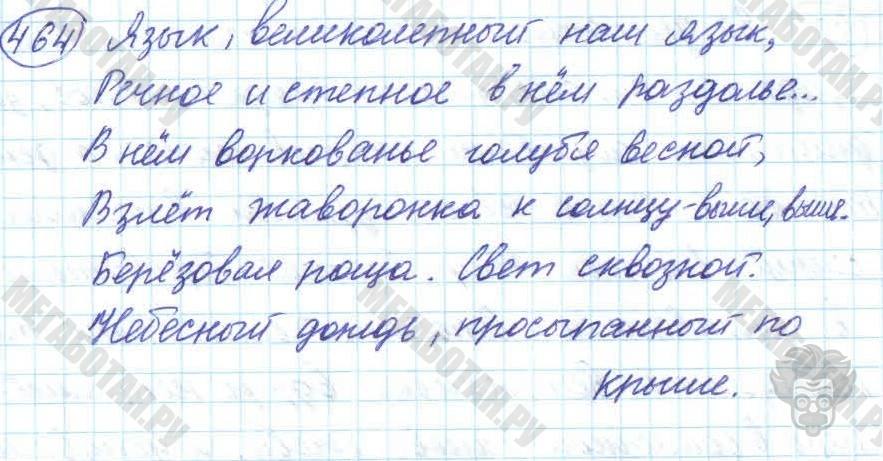 464 Язык, великолепный наш язык,
Речное и степное в нём раздолье...
В нём воркованье голубя весной,
Взлёт жаворонка к солнцу-выше, выше.
Берёзовая роща. Свет сквозной.
Небесный дождь, просыпанный по
крыше.
МЕГАБОТАН.РУ